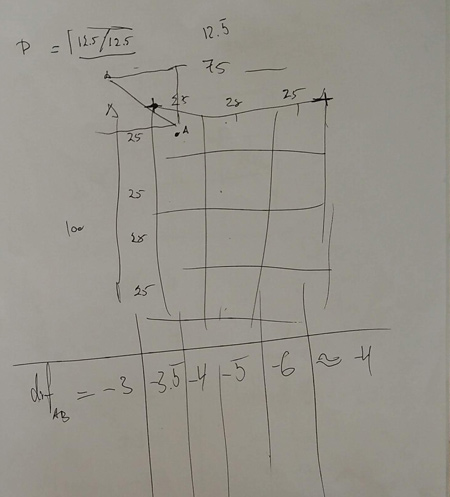 12.5
D = √12.5/12.5
75
25 25 25
A
25
25
100
25
25
dif AB = -3 -3.5 -4 -5 -6 ≈ -4